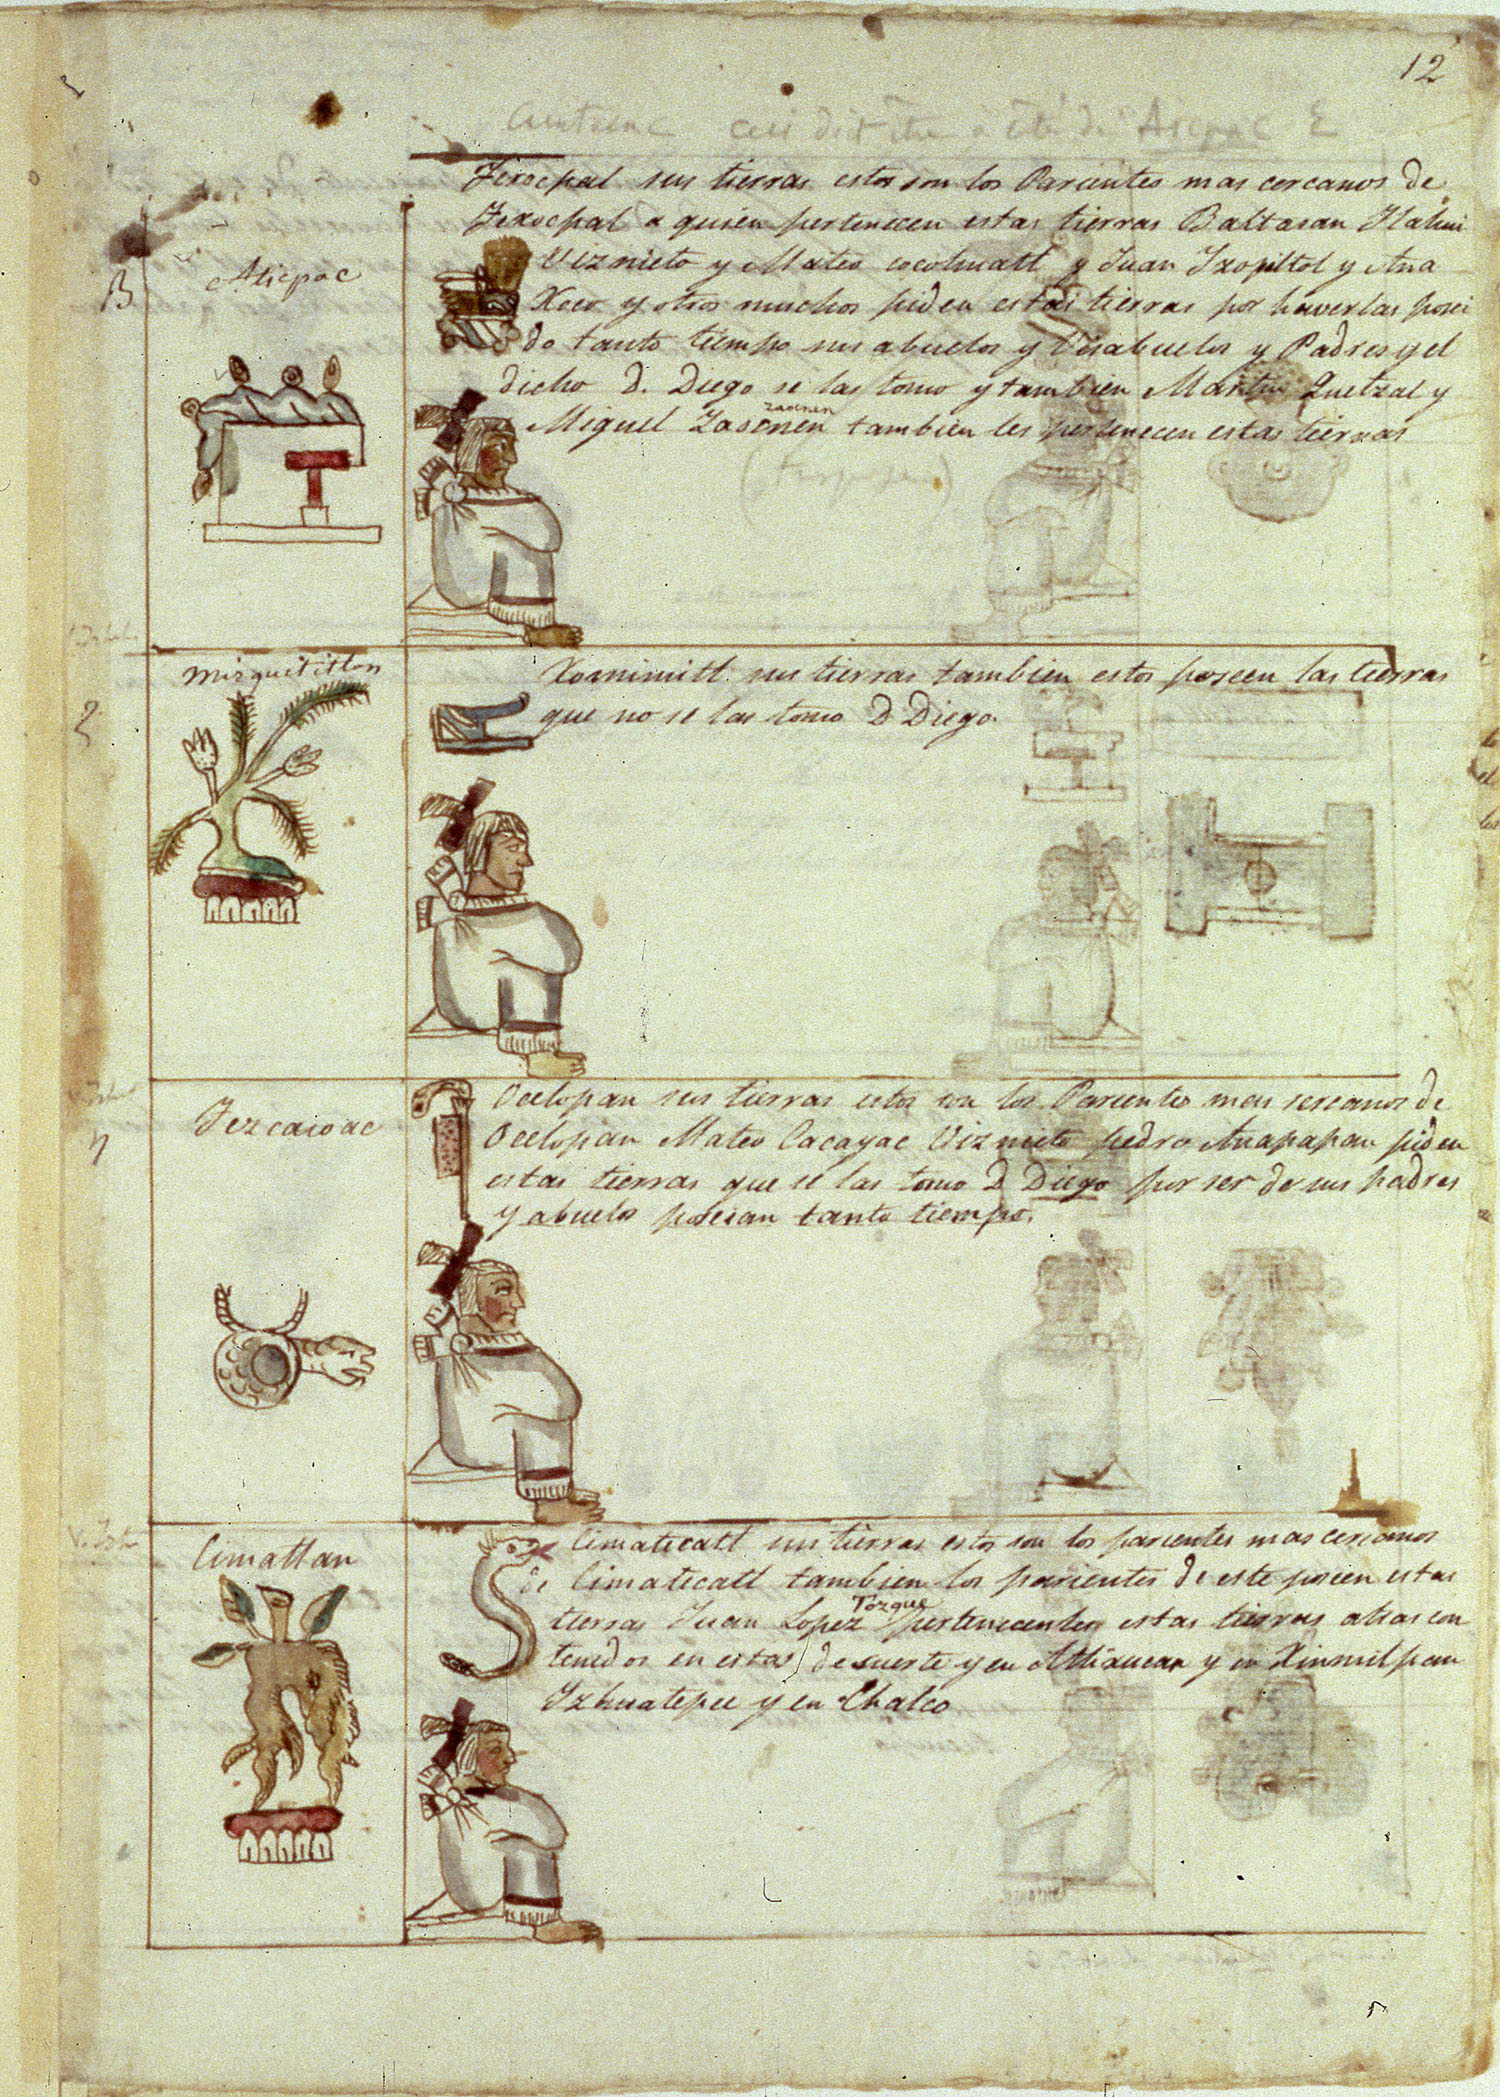 12
Aticpac
Texocpal sus tierras estos son los Parientes mas cercanos de
Texocpal a quien pertenecen estas tierras Baltasan Tlahui
Viznieto y Mateo cocohuatl y Juan Ixopiltol y Ana
Xoco y otros muchos piden estas tierras por haverlas posei
do tanto tiempo sus abuelos y Visabuelos y Padres y el
dicho D. Diego se las tomo y tambien Martin Quetzal y
zaonen
Miguel Zaonen tambien les pertenecen estas tierras
Mizquititlan
Xomimitl sus tierras tambien estos poseen las tierras
que no se las tomo D Diego.
Tezcacoac
Ocelopan sus tierras estos son los Parientes mas sercanos de
Ocelopan Mateo Cacayac Viznieto pedro Anapapan piden
estas tierras que se las tomo D Diego por ser de sus padres
y abuelos poseian tanto tiempo.
Cimatlan
Cimatecatl sus tierras estos son los parientes mas cercanos
de Cimatecatl tambien los parientes de este poseen estas
Tozque
tierras Juan Lopez pertenecentes estas tierras atras con
tenidos en estas de suerte y en Atlixucan y en Xinmilpan
Izhuatepec y en Chalco